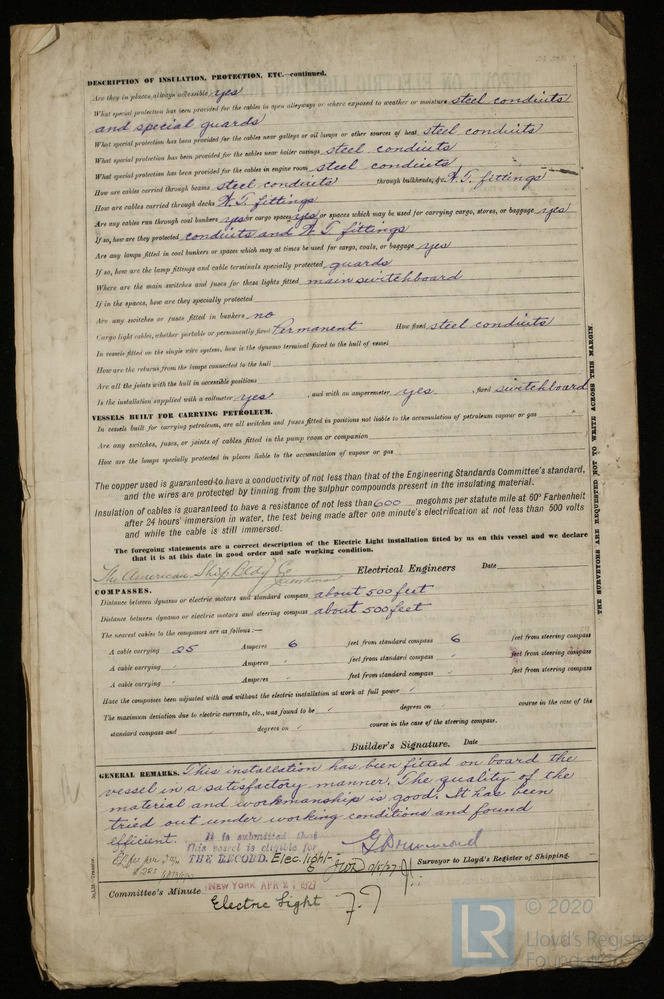 DESCRIPTION OF INSULATION, PROTECTION, ETC.—continued.
Are they in places always accessible yes
What special protection has been provided for the cables in open alleyways or where exposed to weather or moisture steel conduits
and special guards
What special protection has been provided for the cables near galleys or oil lamps or other sources of heat steel conduits
What special protection has been provided for the cables near boiler casings steel conduits
What special protection has been provided for the cables in engine room steel conduits
How are cables carried through beams steel conduits through bulkheads, &c. W.T. fittings
How are cables carried through decks W.T. fittings
Are any cables run through coal bunkers yes or cargo spaces yes or spaces which may be used for carrying cargo, stores, or baggage yes
If so, how are they protected conduits and W.T fittings
Are any lamps fitted in coal bunkers or spaces which may at times be used for cargo, coals, or baggage yes
If so, how are the lamp fittings and cable terminals specially protected guards
Where are the main switches and fuses for these lights fitted main switchboard
If in the spaces, how are they specially protected
Are any switches or fuses fitted in bunkers no
Cargo light cables, whether portable or permanently fixed Permanent How fixed steel conduits
In vessels fitted on the single wire system, how is the dynamo terminal fixed to the hull of vessel
How are the returns from the lamps connected to the hull
Are all the joints with the hull in accessible positions
Is the installation supplied with a voltmeter yes, and with an amperemeter yes, fixed switchboard
VESSELS BUILT FOR CARRYING PETROLEUM.
In vessels built for carrying petroleum, are all switches and fuses fitted in positions not liable to the accumulation of petroleum vapour or gas
Are any switches, fuses, or joints of cables fitted in the pump room or companion
How are the lamps specially protected in places liable to the accumulation of vapour or gas
The copper used is guaranteed to have a conductivity of not less than that of the Engineering Standards Committee's standard,
and the wires are protected by tinning from the sulphur compounds present in the insulating material.
Insulation of cables is guaranteed to have a resistance of not less than 600 megohms per statute mile at 60° Farhenheit
after 24 hours' immersion in water, the test being made after one minute's electrification at not less than 500 volts
and while the cable is still immersed.
The foregoing statements are a correct description of the Electric Light installation fitted by us on this vessel and we declare
that it is at this date in good order and safe working condition.
The American Ship Bldg Co Electrical Engineers Date
COMPASSES.
Distance between dynamo or electric motors and standard compass about 500 feet
Distance between dynamo or electric motors and steering compass about 500 feet
The nearest cables to the compasses are as follows:—
A cable carrying 25 Amperes 6 feet from standard compass 6 feet from steering compass
A cable carrying Amperes feet from standard compass feet from steering compass
A cable carrying Amperes feet from standard compass feet from steering compass
Have the compasses been adjusted with and without the electric installation at work at full power
The maximum deviation due to electric currents, etc., was found to be degrees on course in the case of the
standard compass and degrees on course in the case of the steering compass.
Builder's Signature. Date
GENERAL REMARKS. This installation has been fitted on board the
vessel in a satisfactory manner. The quality of the
material and workmanship is good. It has been
tried out under working conditions and found
efficient.
It is submitted that
this vessel is eligible for
THE RECORD. Elec. light
G Drummond
Surveyor to Lloyd's Register of Shipping.
Committee's Minute NEW YORK APR 21 1927
Electric Light
THE SURVEYORS ARE REQUESTED NOT TO WRITE ACROSS THIS MARGIN.
LR © 2020
Lloyd's Register
Foundation